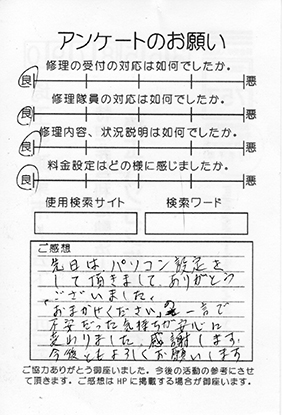 アンケートのお願い
修理の受付の対応は如何でしたか。
良 悪
修理隊員の対応は如何でしたか。
良 悪
修理内容、状況説明は如何でしたか。
良 悪
料金設定はどの様に感じましたか。
良 悪
使用検索サイト 検索ワード
ご感想
先日は、パソコン設定を
して頂きまして、ありがとう
ございました。
"おまかせください"の一言で
不安だった気持ちが安心に
変わりました。感謝します。
今後ともよろしくお願いします
ご協力ありがとう御座いました。今後の活動の参考にさせ
て頂きます。ご感想はHPに掲載する場合が御座います。